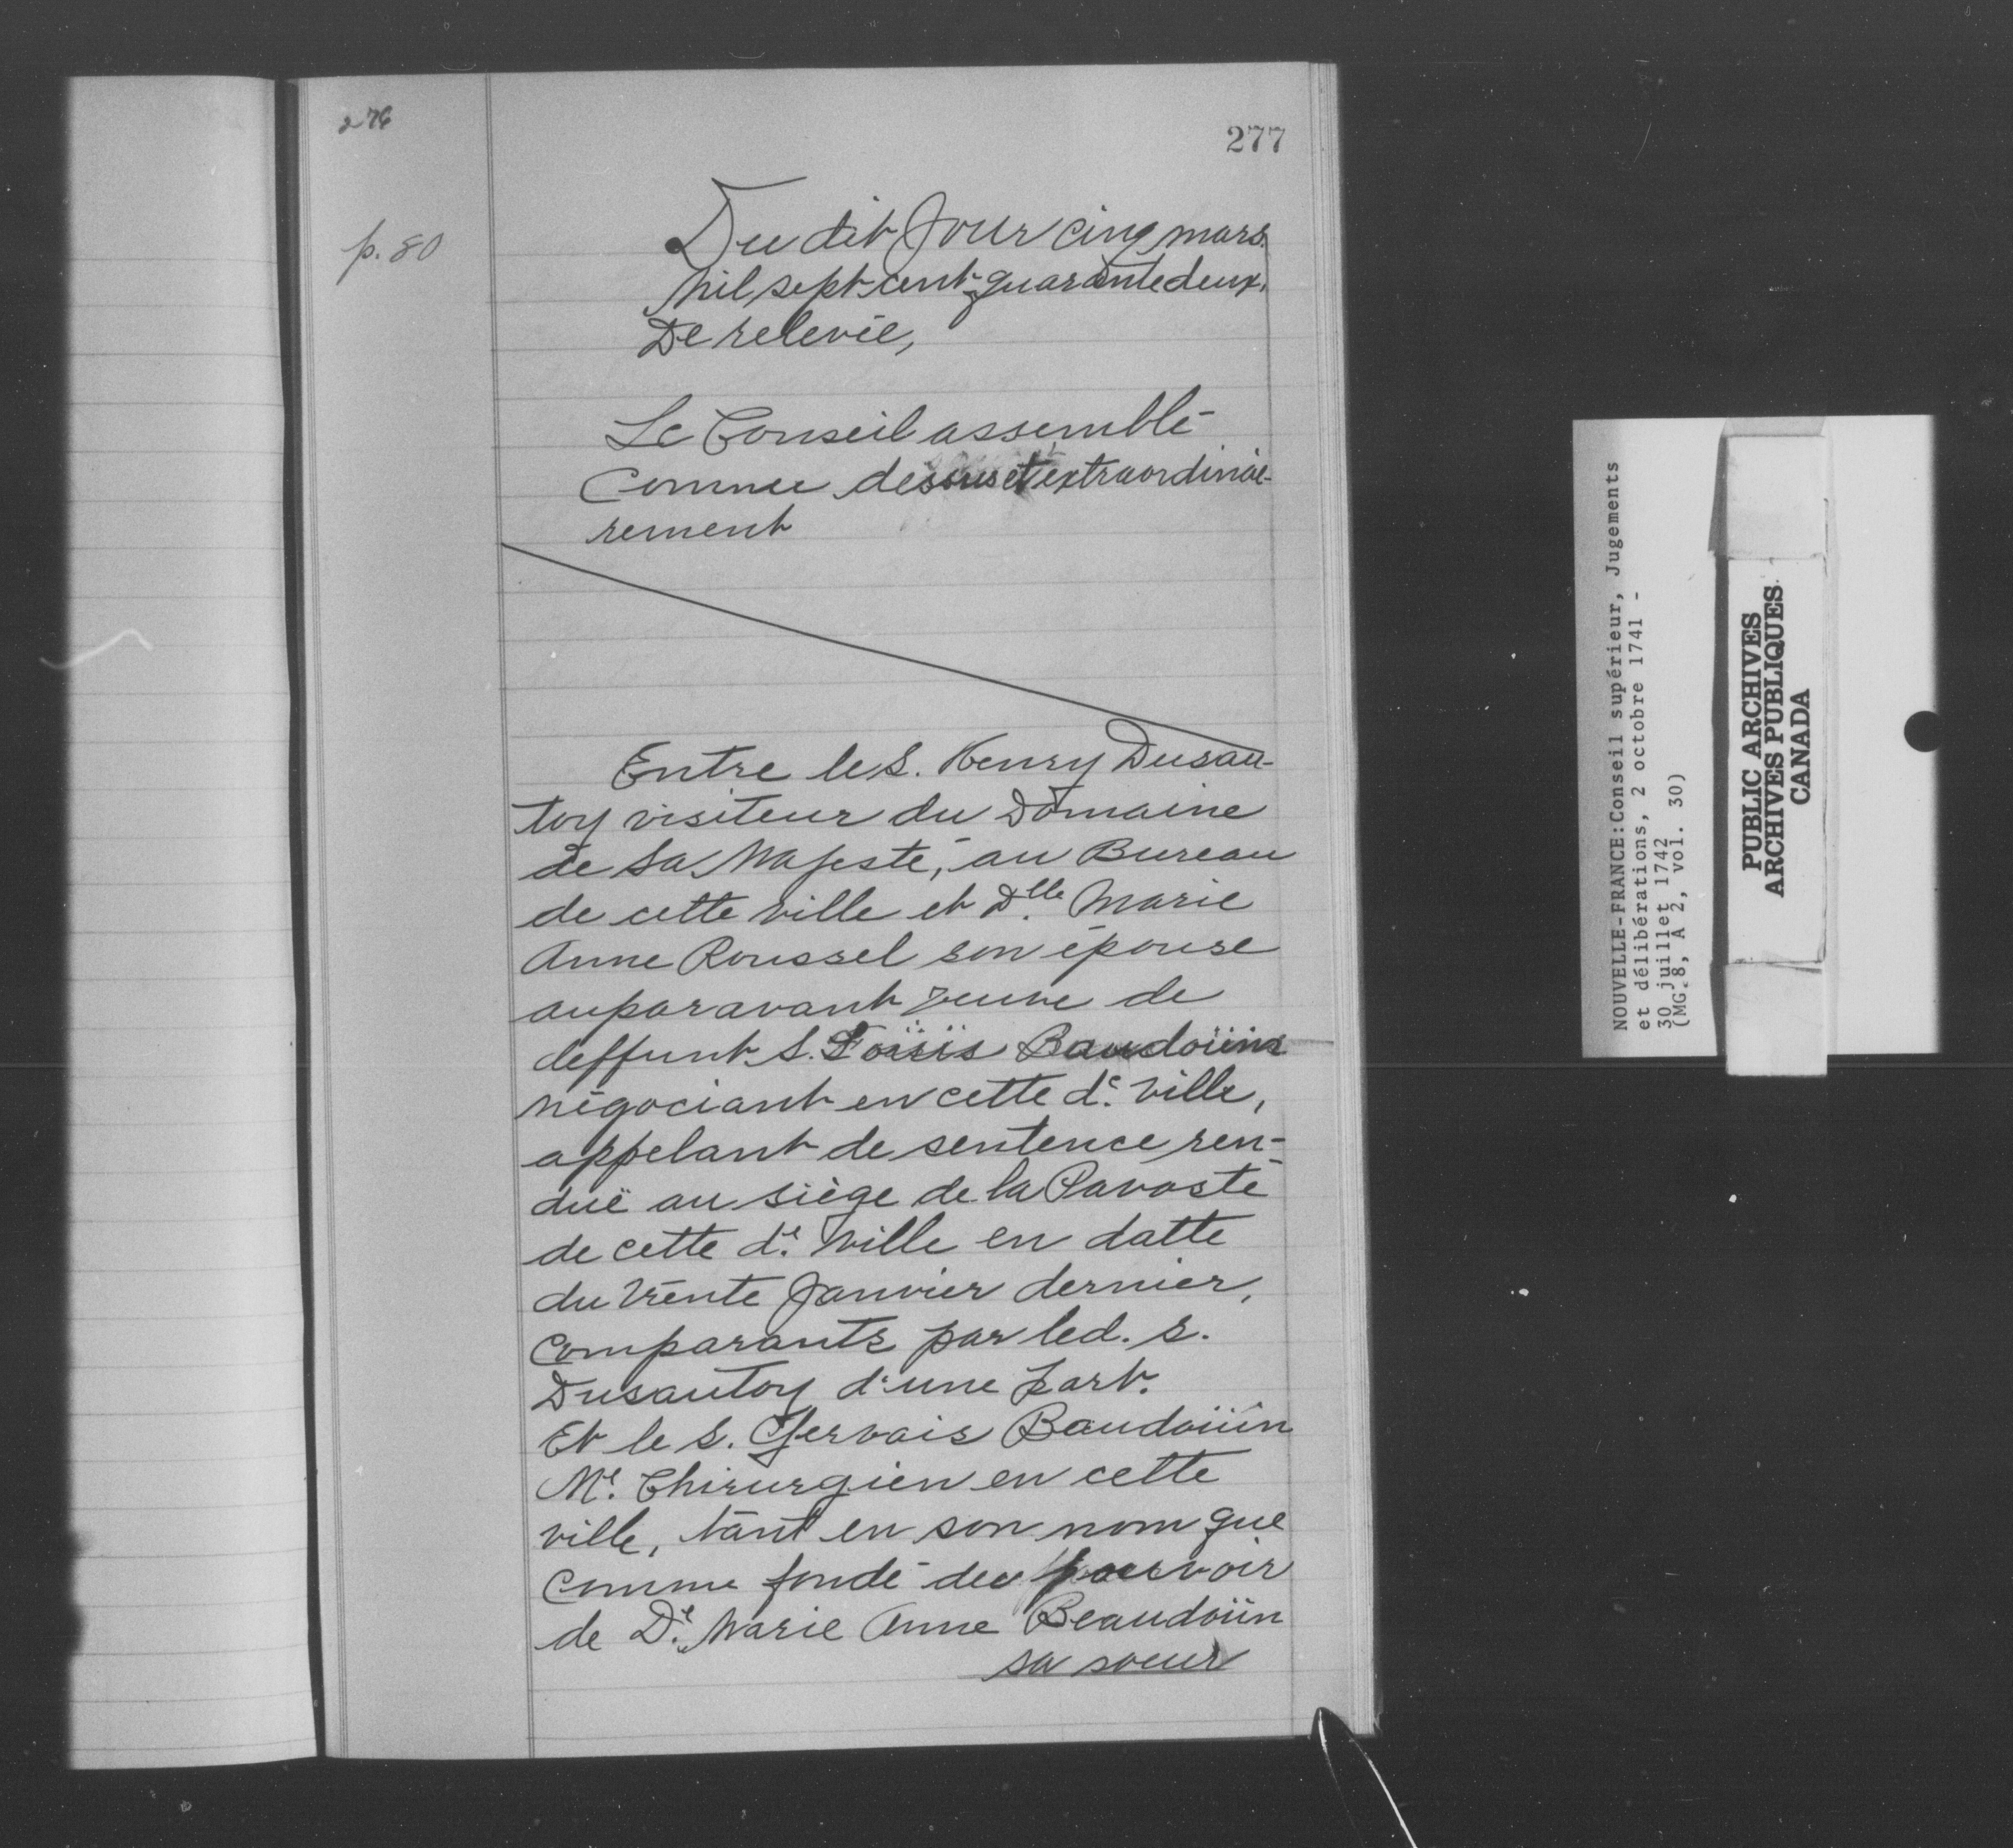 276
277
p. 80
Du dit Jour cinq mars
Mil sept cent quarante deux,
De relevée,
Le Conseil assemblé
Comme desus et extraordinai-
rement
Entre le S. Henry Dusau-
toy visiteur du Domaine
de Sa Majesté, au Bureau
de cette Ville et Dlle. Marie
Anne Roussel son épouse
auparavant veuve de
deffunt S. Loüis Baudoüin
négociant en cette de. Ville,
appelant de sentence ren-
duë au siège de la Pavosté
de cette de. Ville en datte
du trente Janvier dernier,
Comparants par led. s.
Dusautoy d'une part.
Et le S. Gervais Baudoüin
Me. Chirurgien en cette
ville, tant en son nom que
Comme fondé de pouvoir
de De. Marie Anne Beaudoüin
sa soeur
NOUVELLE-FRANCE:Conseil supérieur, Jugements
et délibérations, 2 octobre 1741 -
30 juillet 1742
(MG. 8, A 2, vol. 30)
PUBLIC ARCHIVES
ARCHIVES PUBLIQUES
CANADA